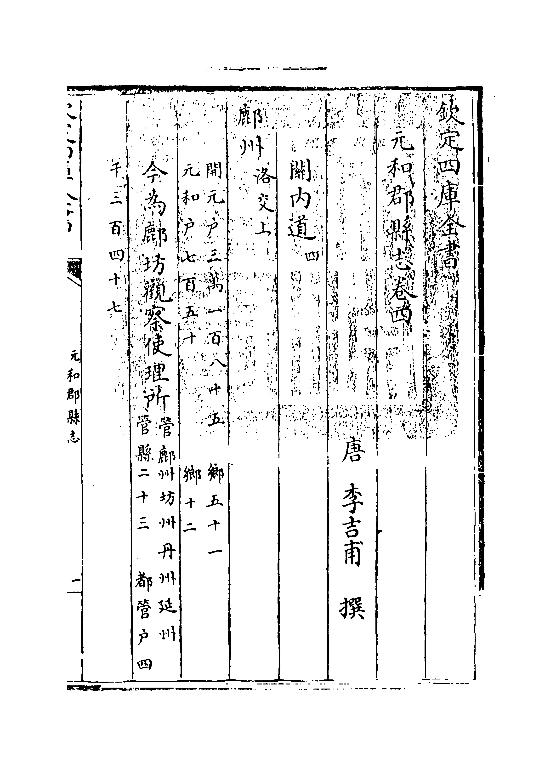 欽定四庫全書
元和郡縣志卷四
唐 李吉甫 撰
關内道四
鄜州 洛交上
開元户三萬一百八十五 鄉五十一
元和户七百五十 鄉十二
今為鄜坊觀察使理所管鄜州坊州丹州延州
管縣二十三 都管户四
千三百四十七
元和郡縣志
一